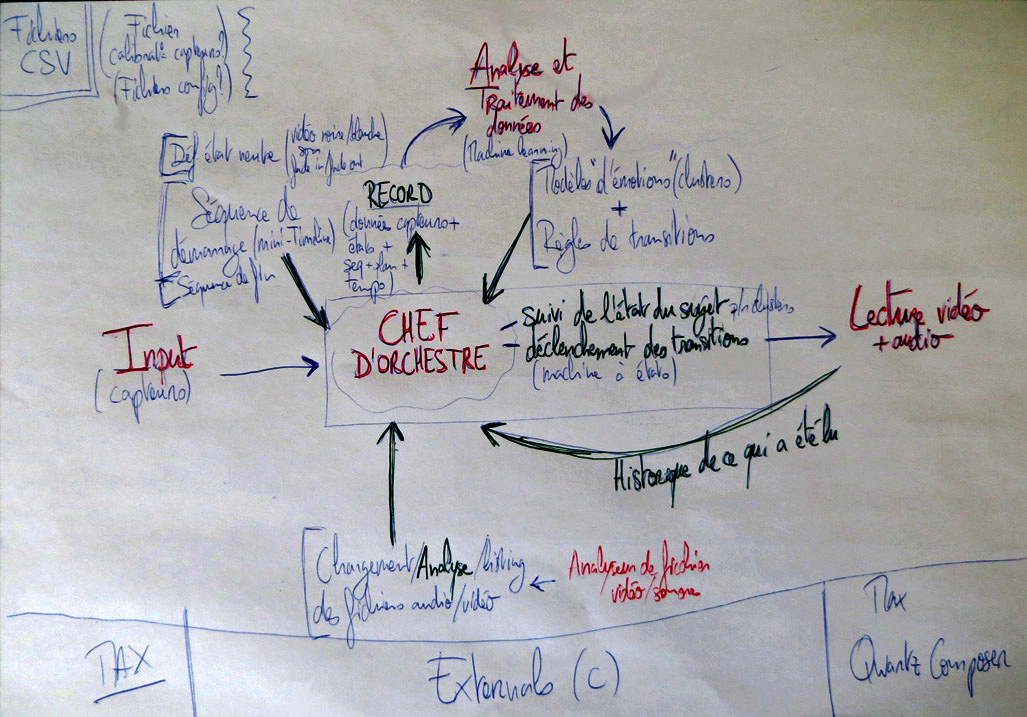 Fichiers
CSV
(Fichier
calibrat° capteurs?)
(Fichiers config?)
Analyse et
Traitement des
données
(Machine learning)
Déf état neutre (vidéo noire/blanche
son
fade in/fade out
RECORD
(données capteurs+
états +
seq+plan +
tempo)
Séquence de
démarrage (mini-Timeline)
Séquence de fin
Modèles "d'émotions" (clusters)
+
Règles de transitions
CHEF
D'ORCHESTRE
- suivi de l'état du sujet clusters
- déclenchement des transitions
(machine à états)
Lecture vidéo
+ audio
Input
(capteurs)
Historique de ce qui a été lu
Chargement/Analyse/listing
des fichiers audio/vidéo
Analyseur de fichier
vidéo/sonore
MAX
Externals (C)
Max
Quartz Composer